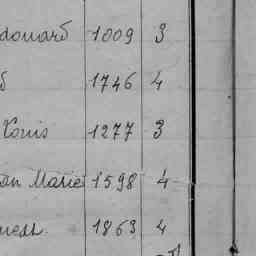 douard 1009 3
d 1746 4
Louis 1277 3
an Marie 1598 4
nest 1863 4